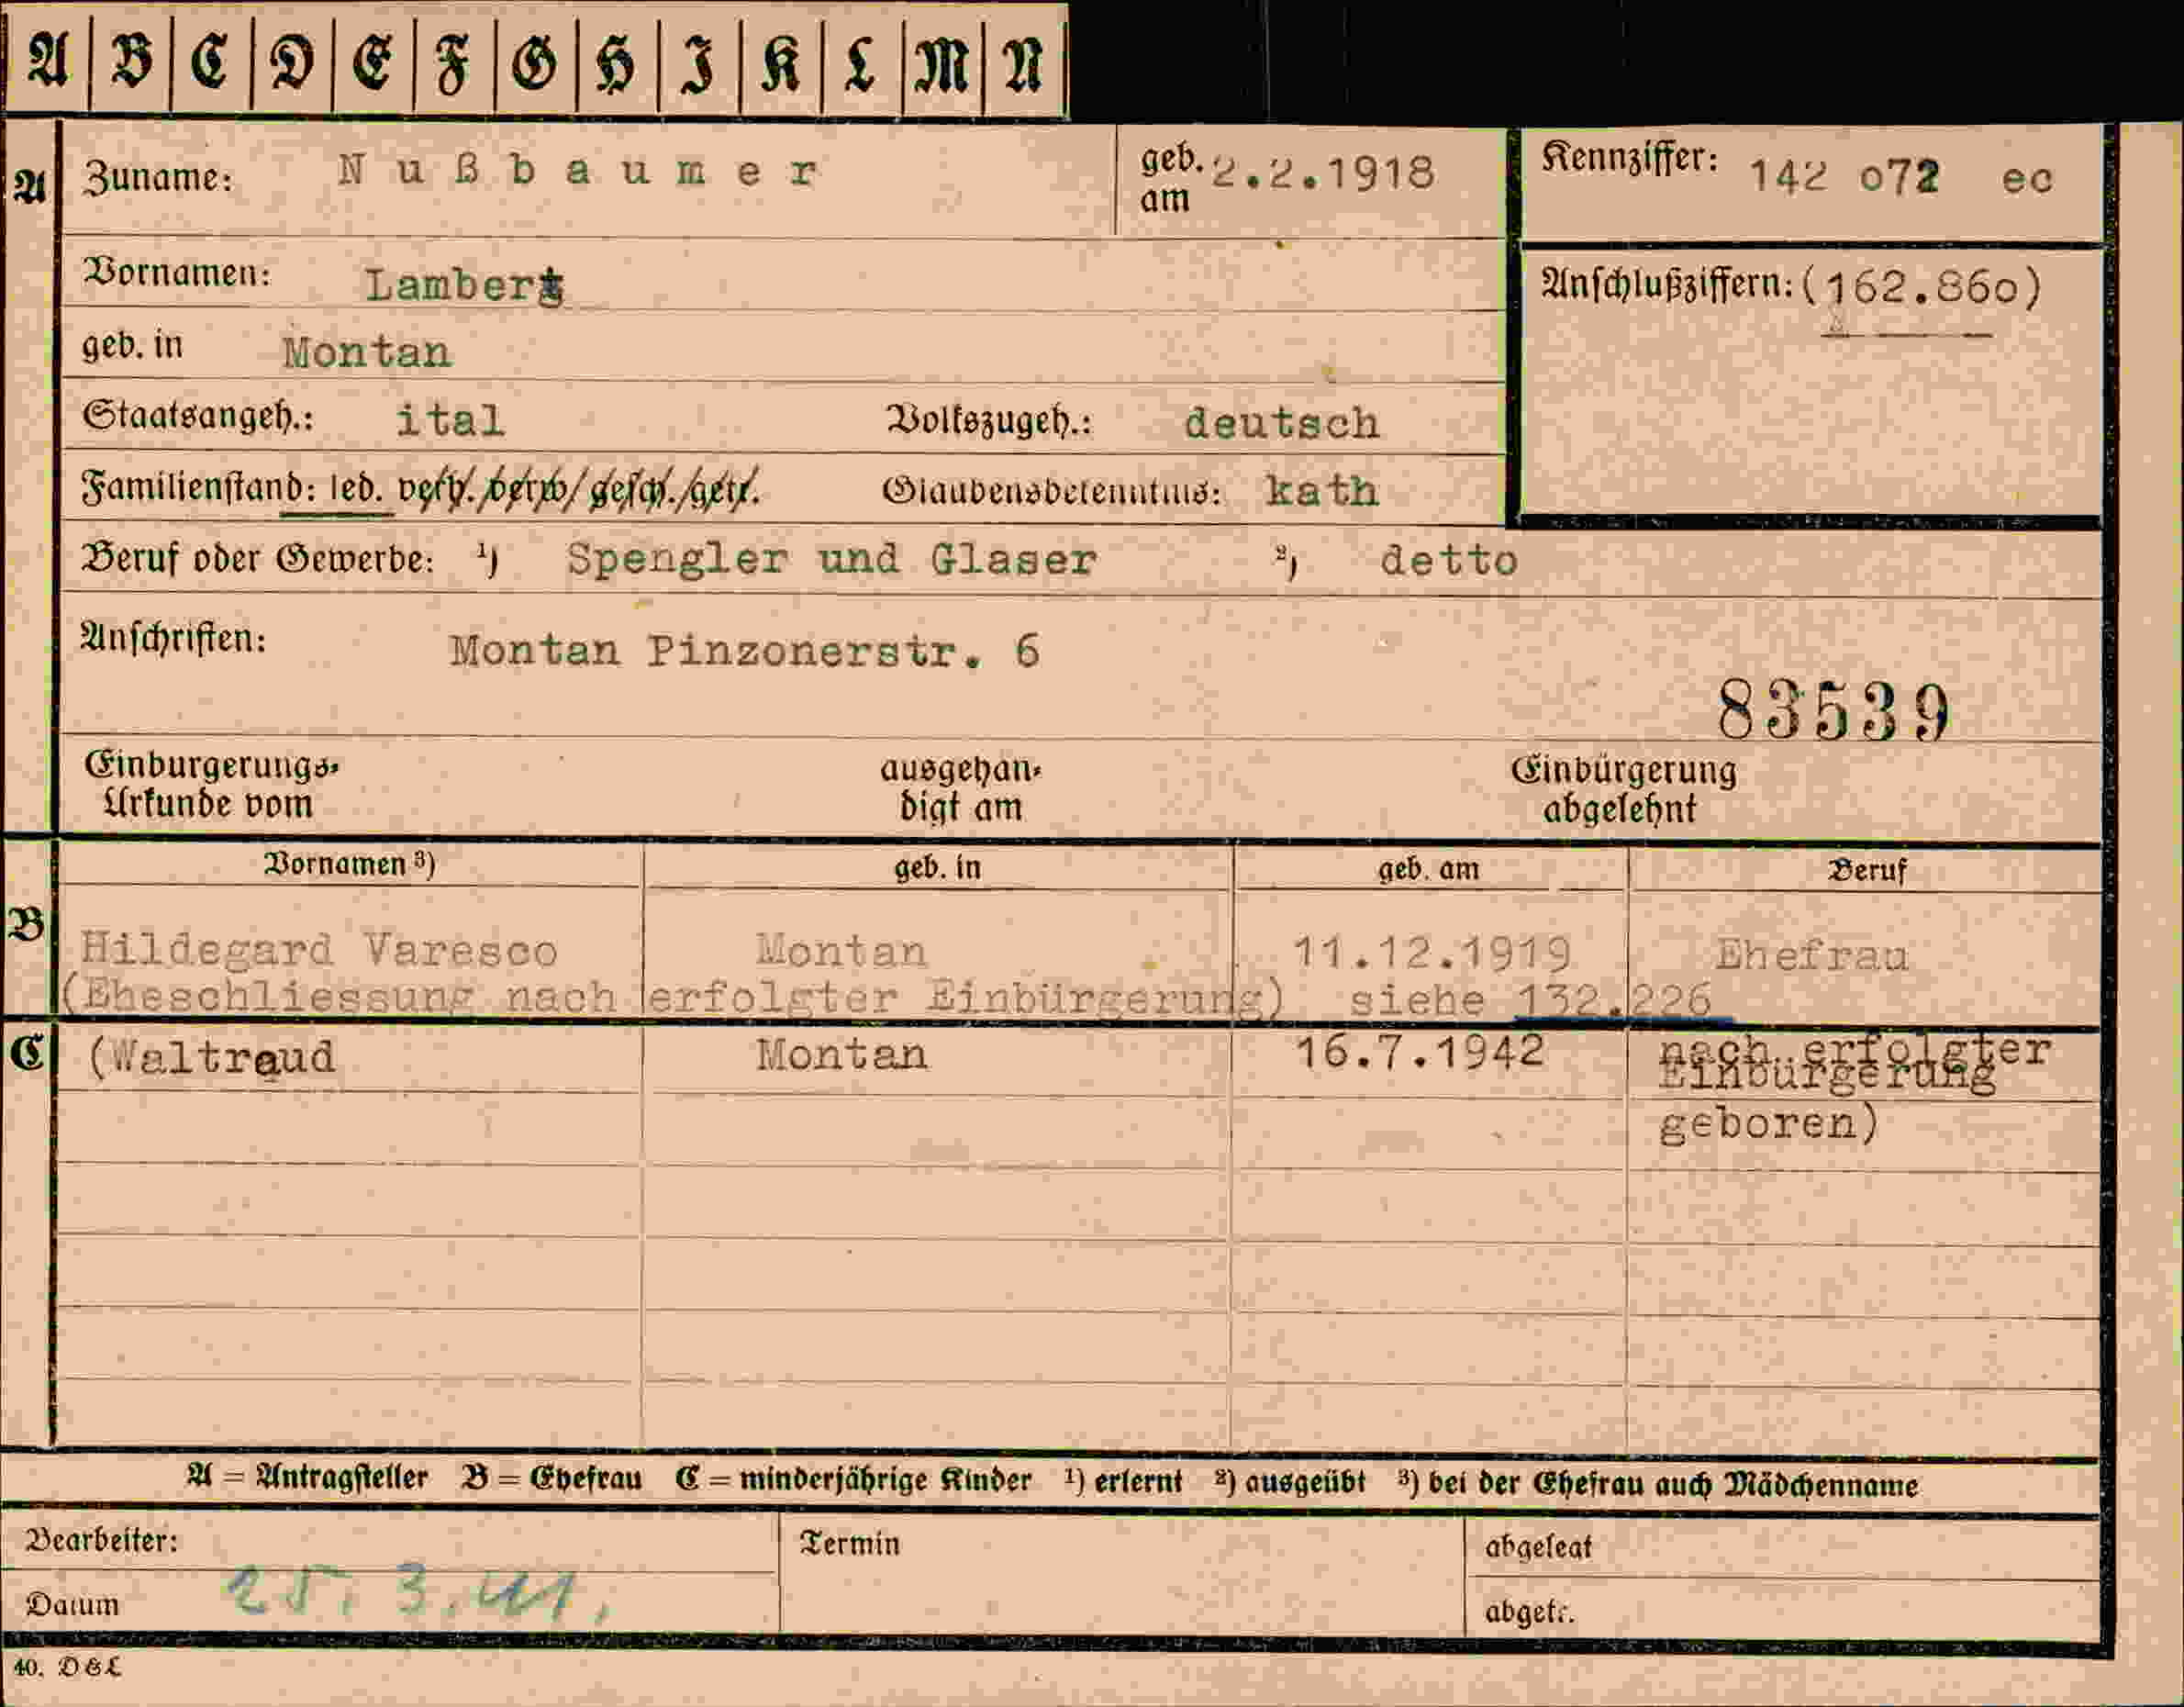 A B C D E F G H I K L M N
A Zuname: Nußbaumer geb. am 2.2.1918 Kennziffer: 142 o72 ec
Vornamen: Lambert Anschlußziffern: (162.86o)
geb. in Montan
Staatsangeh.: ital Volkszugeh.: deutsch
Familienstand: led. verh./verw./gesch./getr. Glaubensbekenntnis: kath
Beruf oder Gewerbe: ¹) Spengler und Glaser ²) detto
Anschriften: Montan Pinzonerstr. 6
83539
Einbürgerungs- ausgehän- Einbürgerung
Urkunde vom digt am abgelehnt
Vornamen ³) geb. in geb. am Beruf
B Hildegard Varesco Montan 11.12.1919 Ehefrau
(Eheschliessung nach erfolgter Einbürgerung) siehe 132.226
C (Waltraud Montan 16.7.1942 nach erfolgter
Einbürgerung
geboren)
A = Antragsteller B = Ehefrau C = minderjährige Kinder ¹) erlernt ²) ausgeübt ³) bei der Ehefrau auch Mädchenname
Bearbeiter: Termin abgelegt
Datum 25. 3. 41. abgetr.
40. D&L